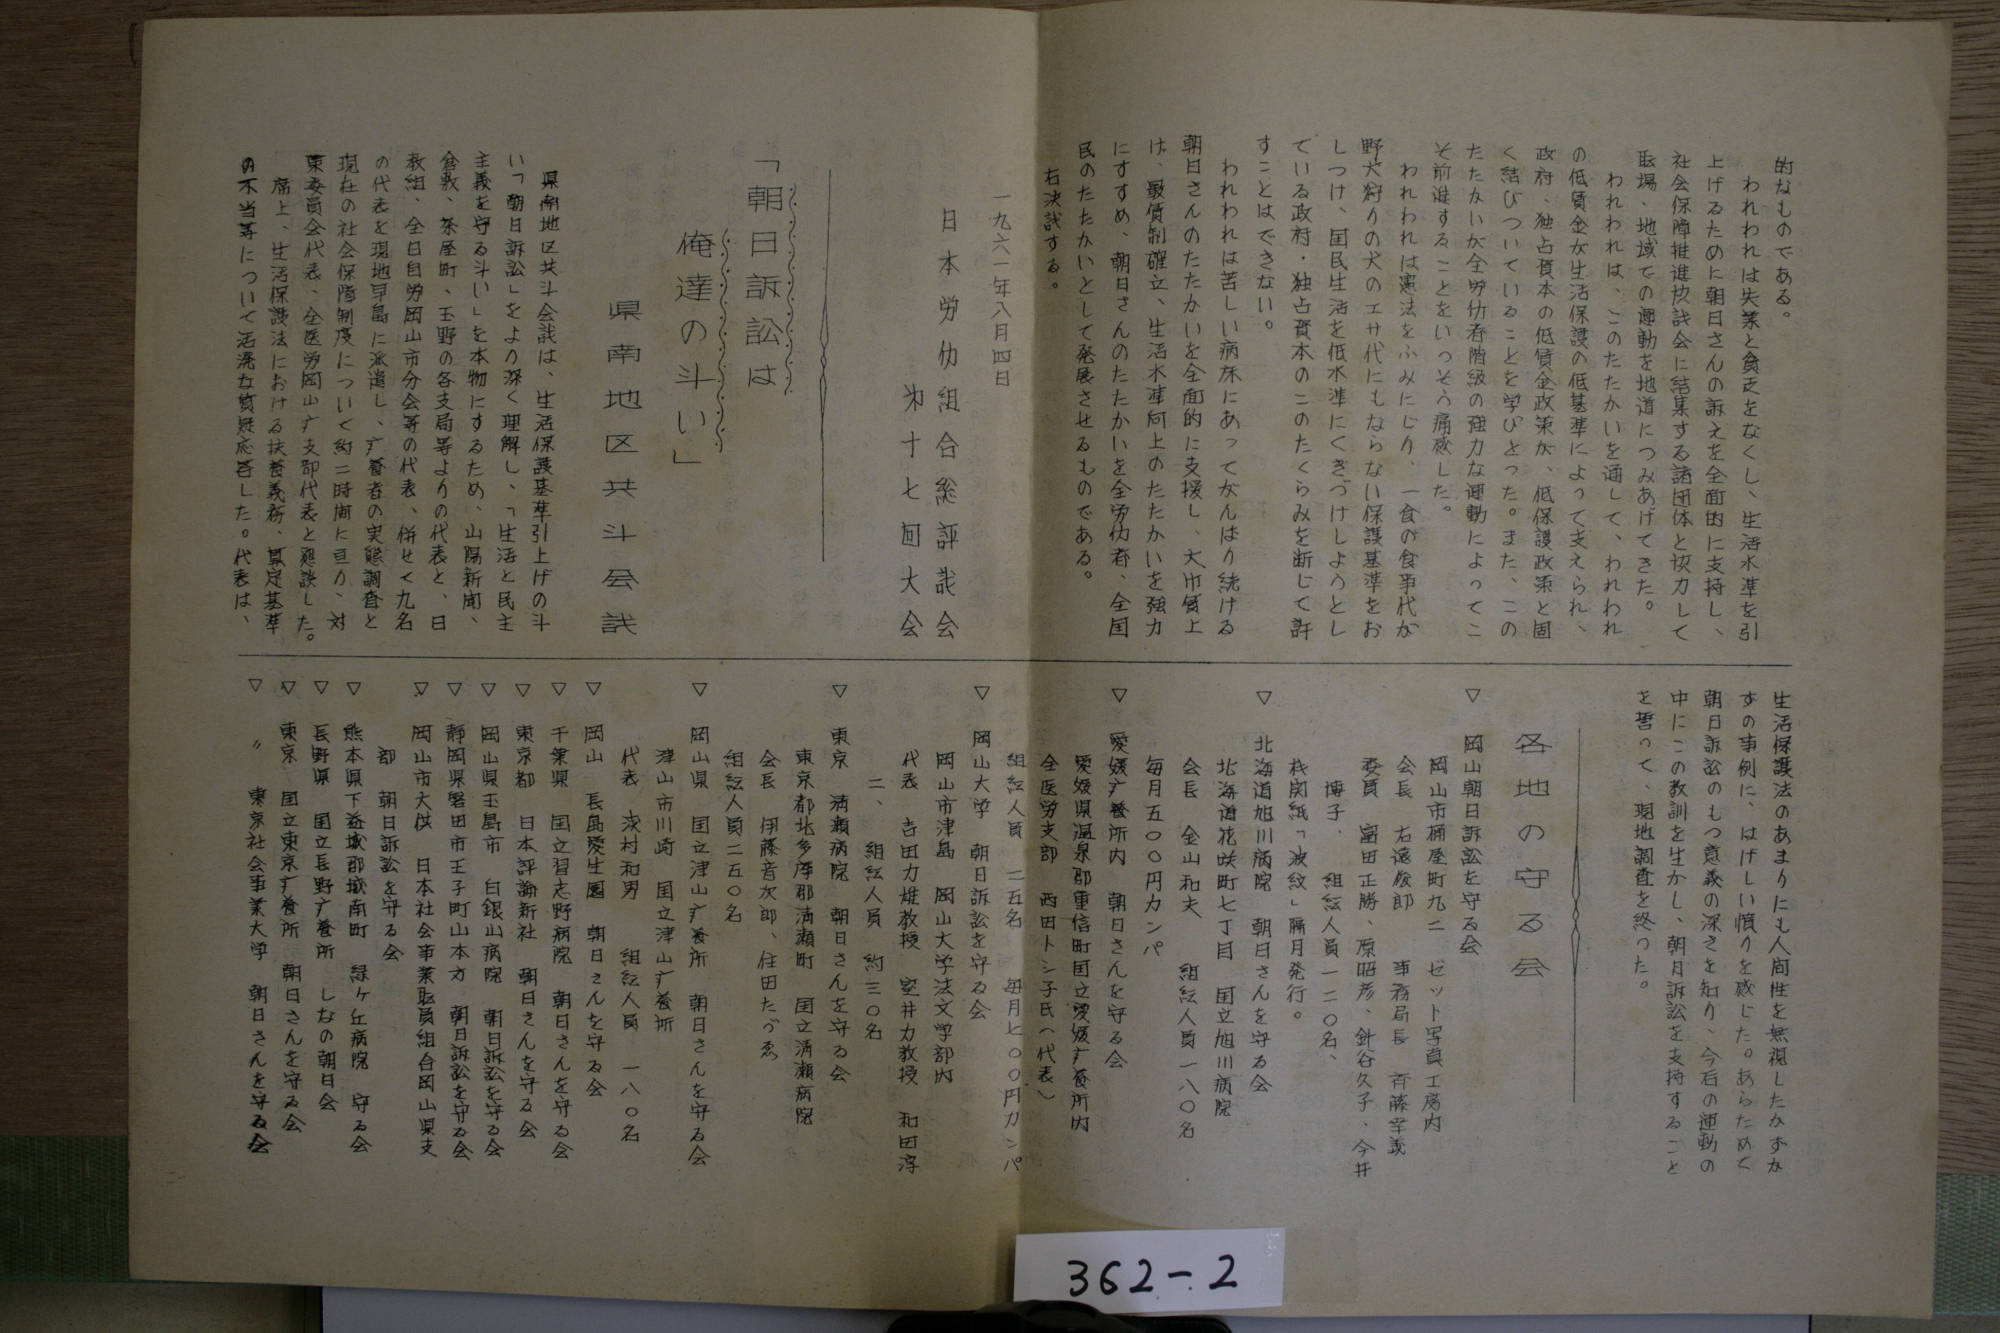 的なものである。
われわれは失業と貧乏をなくし、生活水準を引
上げるために朝日さんの訴えを全面的に支持し、
社会保障推進協議会に結集する諸団体と協力して
职場、地域での運動を地道につみあげてきた。
われわれは、このたたかいを通して、われわれ
の低賃金が生活保護の低基準によって支えられ、
政府、独占資本の低賃金政策が、低保護政策と固
く結びついていることを学びとった。また、この
たたかいが全労仂者階級の強力な運動によってこ
そ前進することをいっそう痛感した。
われわれは憲法をふみにじり、一食の食事代が
野犬狩りの犬のエサ代にもならない保護基準をお
しつけ、国民生活を低水準にくぎづけしようとし
ている政府・独占資本のこのたくらみを断じて許
すことはできない。
われわれは苦しい病床にあってがんばり続ける
朝日さんのたたかいを全面的に支援し、大巾賃上
げ、最賃制確立、生活水準向上のたたかいを強力
にすすめ、朝日さんのたたかいを全労仂者、全国
民のたたかいとして発展させるものである。
右決議する。
一九六一年八月四日
日本労仂組合総評議会
第十七回大会
「朝日訴訟は
俺達の斗い」
県南地区共斗会議
県南地区共斗会議は、生活保護基準引上げの斗
い「朝日訴訟」をより深く理解し、「生活と民主
主義を守る斗い」を本物にするため、山陽新聞、
倉敷、茶屋町、玉野の各支局等よりの代表と、日
教組、全日自労岡山市分会等の代表、併せて九名
の代表を現地早島に派遣し、疒養者の実態調査と
現在の社会保障制度について約二時間に亘り、対
策委員会代表、全医労岡山疒支部代表と懇談した。
席上、生活保護法における扶養義務、算定基準
の不当等について活溌な質疑応答した。代表は、
生活保護法のあまりにも人間性を無視したかずか
ずの事例に、はげしい憤りを感じた。あらためて
朝日訴訟のもつ意義の深さを知り、今后の運動の
中にこの教訓を生かし、朝日訴訟を支持すること
を誓って、現地調査を終った。
各地の守る会
▽ 岡山朝日訴訟を守る会
岡山市桶屋町九二 ゼット写真工房内
会長 右遠俊郎 事務局長 斉藤幸義
委員 富田正勝、原昭彦、針谷久子、今井
博子、 組織人員一二〇名、
機関紙「波紋」隔月発行。
▽ 北海道旭川病院 朝日さんを守る会
北海道花咲町七丁目 国立旭川病院
会長 金山和夫 組織人員一八〇名
毎月五〇〇円カンパ
▽ 愛媛疒養所内 朝日さんを守る会
愛媛県温泉郡重信町国立愛媛疒養所内
全医労支部 西田トシ子氏(代表)
組織人員 二五名 毎月七〇〇円カンパ
▽ 岡山大学 朝日訴訟を守る会
岡山市津島 岡山大学法文学部内
代表 吉田力雄教授 室井力教授 和田淳
二、 組織人員 約三〇名
▽ 東京 清瀬病院 朝日さんを守る会
東京都北多摩郡清瀬町 国立清瀬病院
会長 伊藤音次郎、住田たづゑ
組織人員二五〇名
▽ 岡山県 国立津山疒養所 朝日さんを守る会
津山市川崎 国立津山疒養所
代表 浅村和男 組織人員 一八〇名
▽ 岡山 長島愛生園 朝日さんを守る会
▽ 千葉県 国立習志野病院 朝日さんを守る会
▽ 東京都 日本評論新社 朝日さんを守る会
▽ 岡山県玉島市 白銀山病院 朝日訴訟を守る会
▽ 静岡県磐田市王子町山本方 朝日訴訟を守る会
▽ 岡山市大供 日本社会事業职員組合岡山県支
部 朝日訴訟を守る会
▽ 熊本県下益城郡城南町 緑ケ丘病院 守る会
▽ 長野県 国立長野疒養所 しなの朝日会
▽ 東京 国立東京疒養所 朝日さんを守る会
▽ 〃 東京社会事業大学 朝日さんを守る会
362-2